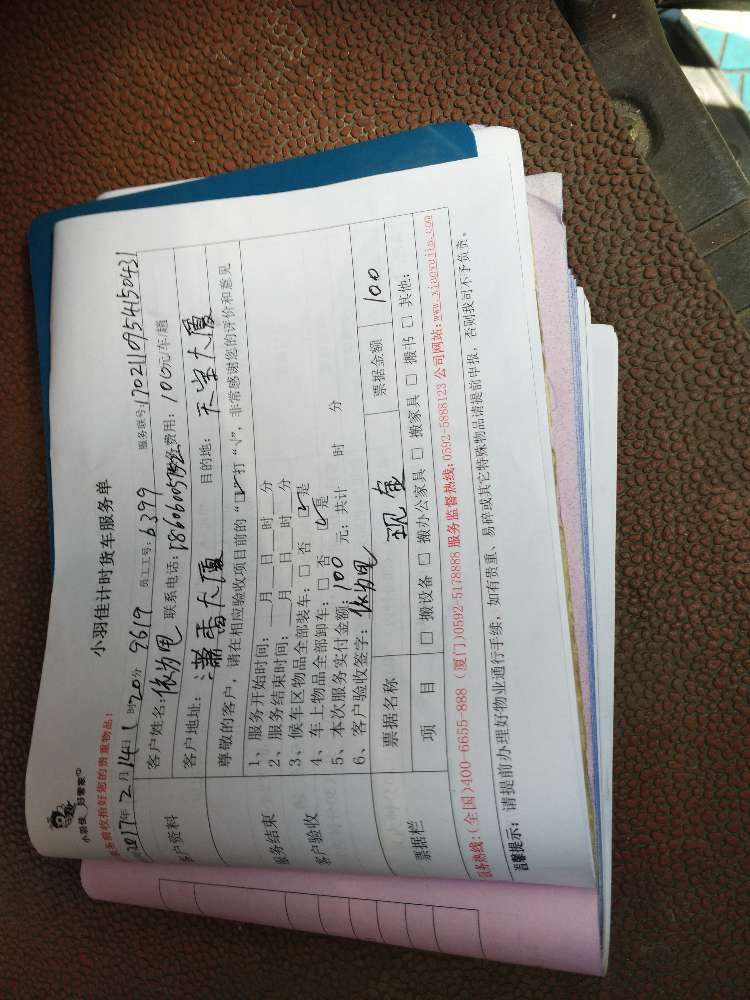 小羽佳 好管家
小羽佳计时货车服务单
服务前收拾好您的贵重物品！
2017年2月14日 时20分 9619 员工工号：6399 服务联号：170211095415043
客户资料
客户姓名： 联系电话： 费用：100元/车/趟
客户地址：潇 大厦 目的地：天宝大厦
尊敬的客户，请在相应验收项目前的“□”打“√”，非常感谢您的评价和意见
服务结束
客户验收
1、服务开始时间： 月 日 时 分
2、服务结束时间： 月 日 时 分
3、候车区物品全部装车：□ 否 □ 是
4、车上物品全部卸车：□ 否 □ 是
5、本次服务实付金额：100 元；共计 时 分
6、客户验收签字：
票据栏
票据名称 现金 票据金额 100
项 目 □ 搬设备 □ 搬办公家具 □ 搬家具 □ 搬书 □ 其他：
服务热线：(全国)400-6655-888 (厦门)0592-5178888 服务监督热线：0592-5888123 公司网站：www.xiaoyujia.com
温馨提示：请提前办理好物业通行手续，如有贵重、易碎或其它特殊物品请提前申报，否则我司不予负责。